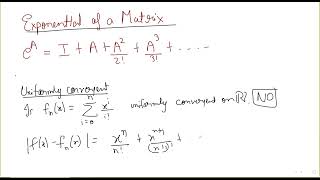 Exponential of a Matrix
e^A = I + A + A²/2! + A³/3! + ....
Uniformly convergent
Is fₙ(x) = Σ_{i=0}^{n} xⁱ/i! uniformly convergent on ℝ? NO
|f(x) - fₙ(x)| = xⁿ/n! + xⁿ⁺¹/(n+1)! + ..